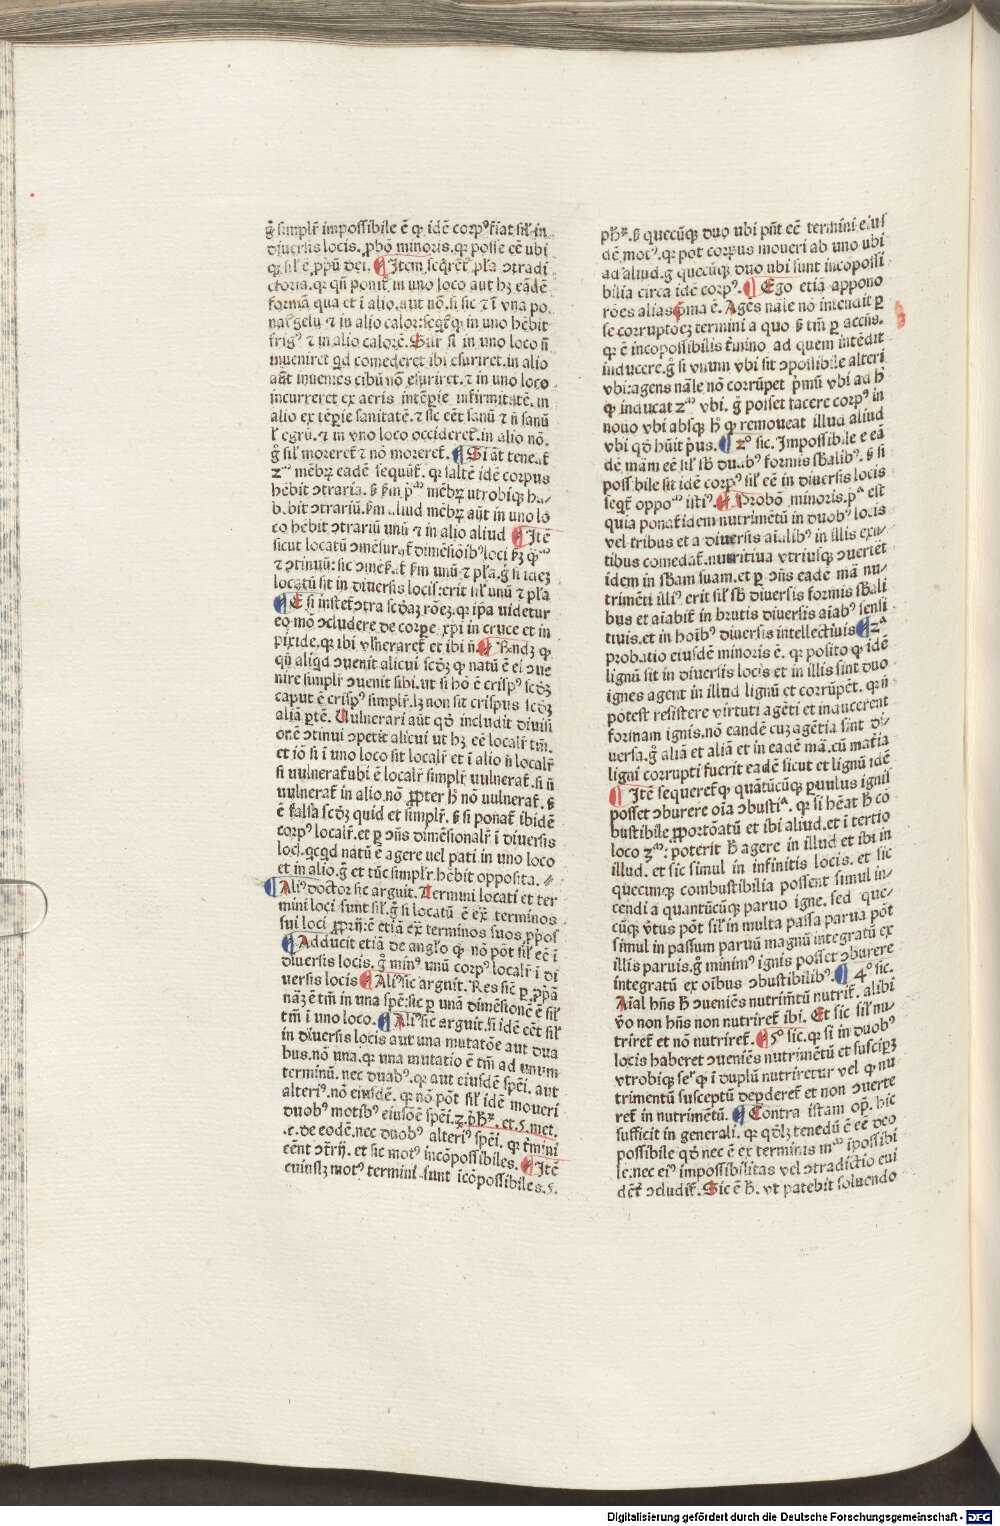 g̃ simplr̃ impossibile ē ꝙ idē corpꝰ fiat sil̃ in
diuersis locis. ꝓbō minoris. qꝛ posse eē ubi
qꝫ sil̃ ē ꝓpꝛiū dei. Item seq̃ret̃ pl̃a ↄtradi
ctoria. qꝛ qñ ponit̃ in uno loco aut hꝫ eādē
formā qua et ī alio. aut nō. si sic ⁊ ī vna po
nat̃ gelu ⁊ in alio calor: seqt̃ꝙ in uno hēbit
frigꝰ ⁊ in alio calorē. Sūr si in uno loco ñ
inueniret qd comederet ibi esuriret. in alio
aūt inueniēs cibū nō esuriret. ⁊ in uno loco
incurreret ex aeris intēꝑie infirmitatē. in
alio ex tēꝑie sanitatē. ⁊ sic eēt sanū ⁊ ñ sanū
ł egrū. ⁊ in vno loco occideret̃. in alio nō.
g̃ sil̃ moreret̃ ⁊ nō moreret̃. Si aūt teneat̃
2ᵐ mēbꝝ eadē sequūt̃. qꝛ saltē idē corpus
hēbit ↄtraria. ẞ fm pᵐ mēbꝝ utrobiqꝫ ha
bebit ↄtrariū. fm aliud mēbꝝ aūt in uno lo
co hēbit ↄtrariū unū ⁊ in alio aliud Itē
sicut locatū ↄmēsurat̃ dimēsiōibꝰ loci fꝫ qᵐ
⁊ ↄtinuū: sic ↄmēsurat̃ fm unū ⁊ pl̃a. g̃ si idē
locatū sit in diuersis locis: erit sil̃ unū ⁊ pl̃a
Et si instet̃ ↄtra scd̃aꝫ rōeꝫ. qꝛ ip̃a uidetur
eo mō ↄcludere de corpe xp̄i in cruce et in
pixide. qꝛ ibi vl̃neraret̃ et ibi ñ. Rñdꝫ ꝙ
qñ aliqd ↄuenit alicui scd̃ꝫ ꝙ natū ē ei ↄue
nire simplr̃ ↄuenit sibi. ut si hō ē crispꝰ scd̃ꝫ
caput ē crispꝰ simplr̃. lꝫ non sit crispus scd̃ꝫ
aliā ꝑtē. Vulnerari aūt qd̃ includit diuisi
onē ↄtinui ↄpetit alicui ut hꝫ eē localr̃ tm̃.
et iō si ī uno loco sit localr̃ et ī alio ñ localr̃
si vulneret̃ ubi ē localr̃ simplr̃ uulnerat̃. si ñ
uulnerat̃ in alio. nō ꝓpter h̃ nō uulnerat̃. ẞ
ē falsa scd̃ꝫ quid et simplr̃. ẞ si ponat̃ ibidē
corpꝰ localr̃. et ꝑ ↄñs dimēsionalr̃ ī diuersis
locis. qcqd natū ē agere uel pati in uno loco
et in alio. g̃ et tūc simplr̃. hēbit opposita.
Aliꝰ doctor sic arguit. Termini locati et ter
mini loci sunt sil̃. g̃ si locatū ē ex̃ terminos
sui loci ꝓprij: ē etiā ex̃ terminos suos ꝓp̃os
Adducit etiā de angl̃o ꝙ nō pōt sil̃ eē ī
diuersis locis. g̃ minꝰ unū corpꝰ localr̃ ī di
uersis locis Aliꝰ sic arguit. Res sic̄ ꝑ ꝓp̃ā
nāꝫ ē tm̃ in una spē: sic ꝑ unā dimēsionē ē sil̃
tm̃ ī uno loco. Aliꝰ sic arguit. si idē eēt sil̃
in diuersis locis aut una mutatōe aut dua
bus. nō una. qꝛ una mutatio ē tm̃ ad unum
terminū. nec duabꝰ. qꝛ aut eiusdē sp̄ei. aut
alteriꝰ. nō eiusdē. qꝛ nō pōt sil̃ idē moueri
duobꝰ motibꝰ eiusdē sp̄ei. 3. ph̃ꝝ. et. 5. met.
.c. de eodē. nec duobꝰ alteriꝰ sp̄ei. qꝛ t̃mini
eēnt ↄtrij. et sic motꝰ incōpossibiles. Itē
cuiuslꝫ motꝰ termini sunt icōpossibiles. 5.
ph̃ꝝ. ẞ quecūqꝫ duo ubi pn̄t eē termini eius
dē motꝰ. qꝛ pōt corpus moueri ab uno ubi
ad aliud. g̃ quecūqꝫ duo ubi sunt incōpossi
bilia circa idē corpꝰ. Ego etiā appono
rōes alias p̄ma ē. Agēs nāle nō intendit ꝑ
se corruptōeꝫ termini a quo ẞ tm̃ ꝑ accn̄s.
qꝛ ē incōpossibilis t̃mino ad quem intēdit
inducere. g̃ si vnum vbi sit ↄpossibile alteri
vbi: agens nāle nō corrūpet p̄mū vbi ad h̃
ꝙ inducat 2ᵐ vbi. g̃ posset facere corpꝰ in
nouo vbi absqꝫ h̃ ꝙ remoueat illud aliud
vbi qd̃ hūit pꝛius. 2º sic. Impossibile ē eā
dē mām eē sil̃ sb̃ duabꝰ formis sb̃alibꝰ. ẞ si
possibile sit idē corpꝰ sil̃ eē in diuersis locis
seqt̃ oppoᵐ istiꝰ. Probō minoris. pᵃ est
quia ponat̃ idem nutrimētū in duobꝰ locis
vel tribus et a diuersis aīalibꝰ in illis exn̄
tibus comedat̃. nutritiua vtriusqꝫ ↄuertēt
idem in sb̃am suam. et ꝑ ↄñs eadē mā nu
trimēti illiꝰ erit sil̃ sb̃ diuersis formis sb̃ali
bus et aīabit̃ in brutis diuersis aīabꝰ sensi
tiuis. et in hoībꝰ diuersis intellectiuis 2ᵃ
probatio eiusdē minoris ē. qꝛ posito ꝙ idē
lignū sit in diuersis locis et in illis sint duo
ignes agent in illud lignū et corrūpēt. qꝛ ñ
potest resistere virtuti agēti et inducerent
formam ignis. nō eandē cuꝫ agētia sint di
uersa. g̃ aliā et aliā et in eadē mā. cū mat̃ia
ligni corrupti fuerit eadē sicut et lignū idē
Itē sequeret̃ ꝙ quātūcūqꝫ ꝑuulus ignis
posset ↄburere oīa ↄbustiᵃ. qꝛ si hēat h̃ cō
bustibile ꝓportōatū et ibi aliud. et ī tertio
loco 3ᵐ: poterit h̃ agere in illud et ibi in
illud. et sic simul in infinitis locis. et sic
quecunqꝫ combustibilia possent simul in-
cendi a quantūcūqꝫ paruo igne. sed que-
cūqꝫ v̄tus pōt sil̃ in multa passa parua pōt
simul in passum paruū magnū integratū ex
illis paruis. g̃ minimꝰ ignis posset ↄburere
integratū ex oībus ↄbustibilibꝰ. 4º sic.
Aīal hn̄s h̃ ↄueniēs nutrim̄tū nutrit̃. alibi
v̄o non hn̄s non nutriret̃ ibi. Et sic sil̃ nu-
triret̃ et nō nutriret̃. 5º sic. qꝛ si in duobꝰ
locis haberet ↄueniēs nutrimētū et susciꝑꝫ
vtrobiqꝫ seqꝰ ꝙ ī duplū nutriretur vel ꝙ nu
trimentū susceptū deperderet̃ et non ↄuerte
ret̃ in nutrimētū. Contra istam op̄. hic
sufficit in generali. qꝛ qd̃lꝫ tenēdū ē eē deo
possibile qd̃ nec ē ex terminis mᵐ īpossibi
le. nec eiꝰ impossibilitas vel ↄtradictio eui
dēt̃ ↄcludit̃. Sic ē h̃. vt patebit soluendo
Digitalisierung gefördert durch die Deutsche Forschungsgemeinschaft - DFG